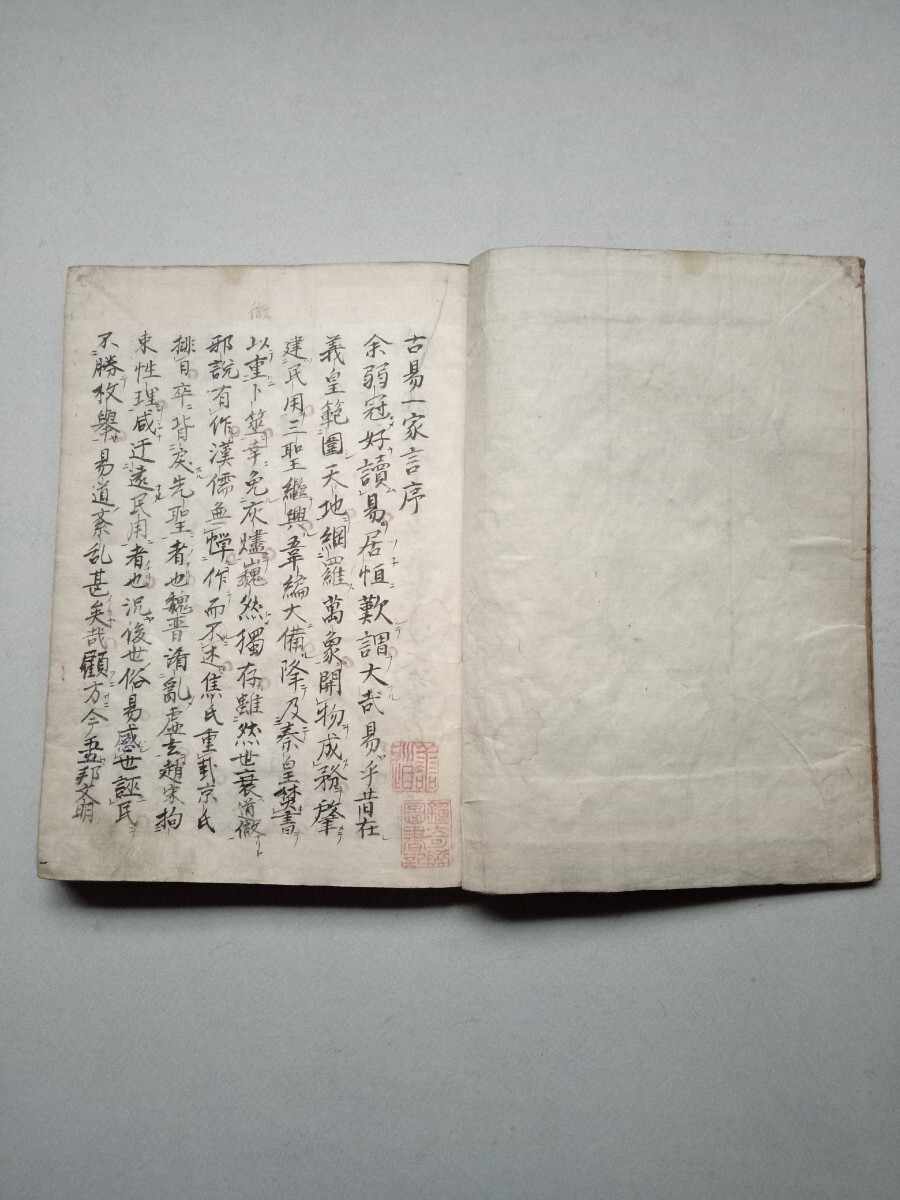 古易一家言序
余弱冠好讀易居恒歎謂大哉易乎昔在
義皇範圍天地網羅萬象開物成務肇
建民用三聖繼興韋編大備降及秦皇焚書
以重卜筮幸免灰燼巍然獨存雖然世衰道微
邪説有作漢儒無憚作而不述焦氏重卦京氏
排日卒皆戻先聖者也魏晋淆亂虚玄趙宋拘
束性理咸迂遠民用者也況後世俗易惑世誣民
不勝枚擧易道紊乱甚矣哉顧方今吾邦文明
微